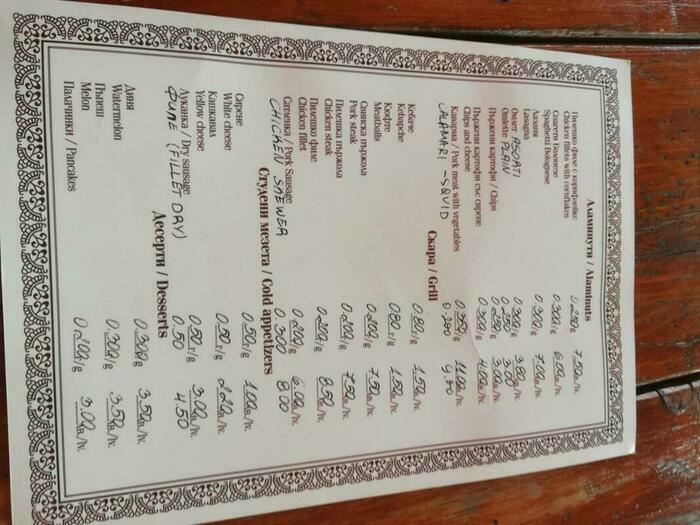 Аламинути / Alaminuts
Пилешко филе с корнфлейкс 0.250г/g 7.50лв./lv.
Chicken fillets with cornflakes
Спагети Болонезе 0.300г/g 6.00лв./lv.
Spaghetti Bolognese
Лазаня 0.300г/g 7.00лв./lv.
Lassagna
Омлет ASORTI 0.300г/g 3.80лв./lv.
Omlette PLAIN 0.250 3.00
Пържени картофи / Chips 0.250г/g 3.00лв./lv.
Пържени картофи със сирене 0.300г/g 4.00лв./lv.
Chips and cheese
Каварма / Pork meat with vegetables 0.350г/g 11.00лв./lv.
CALAMARI - SQUID 0.200
Скара / Grill
Кебапче 0.80г/g 1.50лв./lv.
Kebapche
Кюфте 080г/g 1.50лв./lv.
Meatballs
Свинска пържола 0.200г/g 7.50лв./lv.
Pork steak
Пилешка пържола 0.200г/g 7.50лв./lv.
Chicken steak
Пилешко филе 0.200г/g 8.50лв./lv.
Chicken fillet
/ Pork Sausage 0.200г/g 6.00лв./lv.
CHICKEN SKEWER 0.300 8.00
Студени мезета / Cold appetizers
Сирене 0.50г/g 1.00лв./lv.
White cheese
Кашкавал 0.50г/g 2.20лв./lv.
Yellow cheese
Луканка / Dry sausage 0.50г/g 3.00лв./lv.
ФИЛЕ (FILLET DRY) 0.50 4.50
Десерти / Desserts
Диня 0.300г/g 3.50лв./lv.
Watermelon
Пъпеш 0.300г/g 3.50лв./lv.
Melon
Палачинки / Pancakes 0.200г/g 3.00лв./lv.